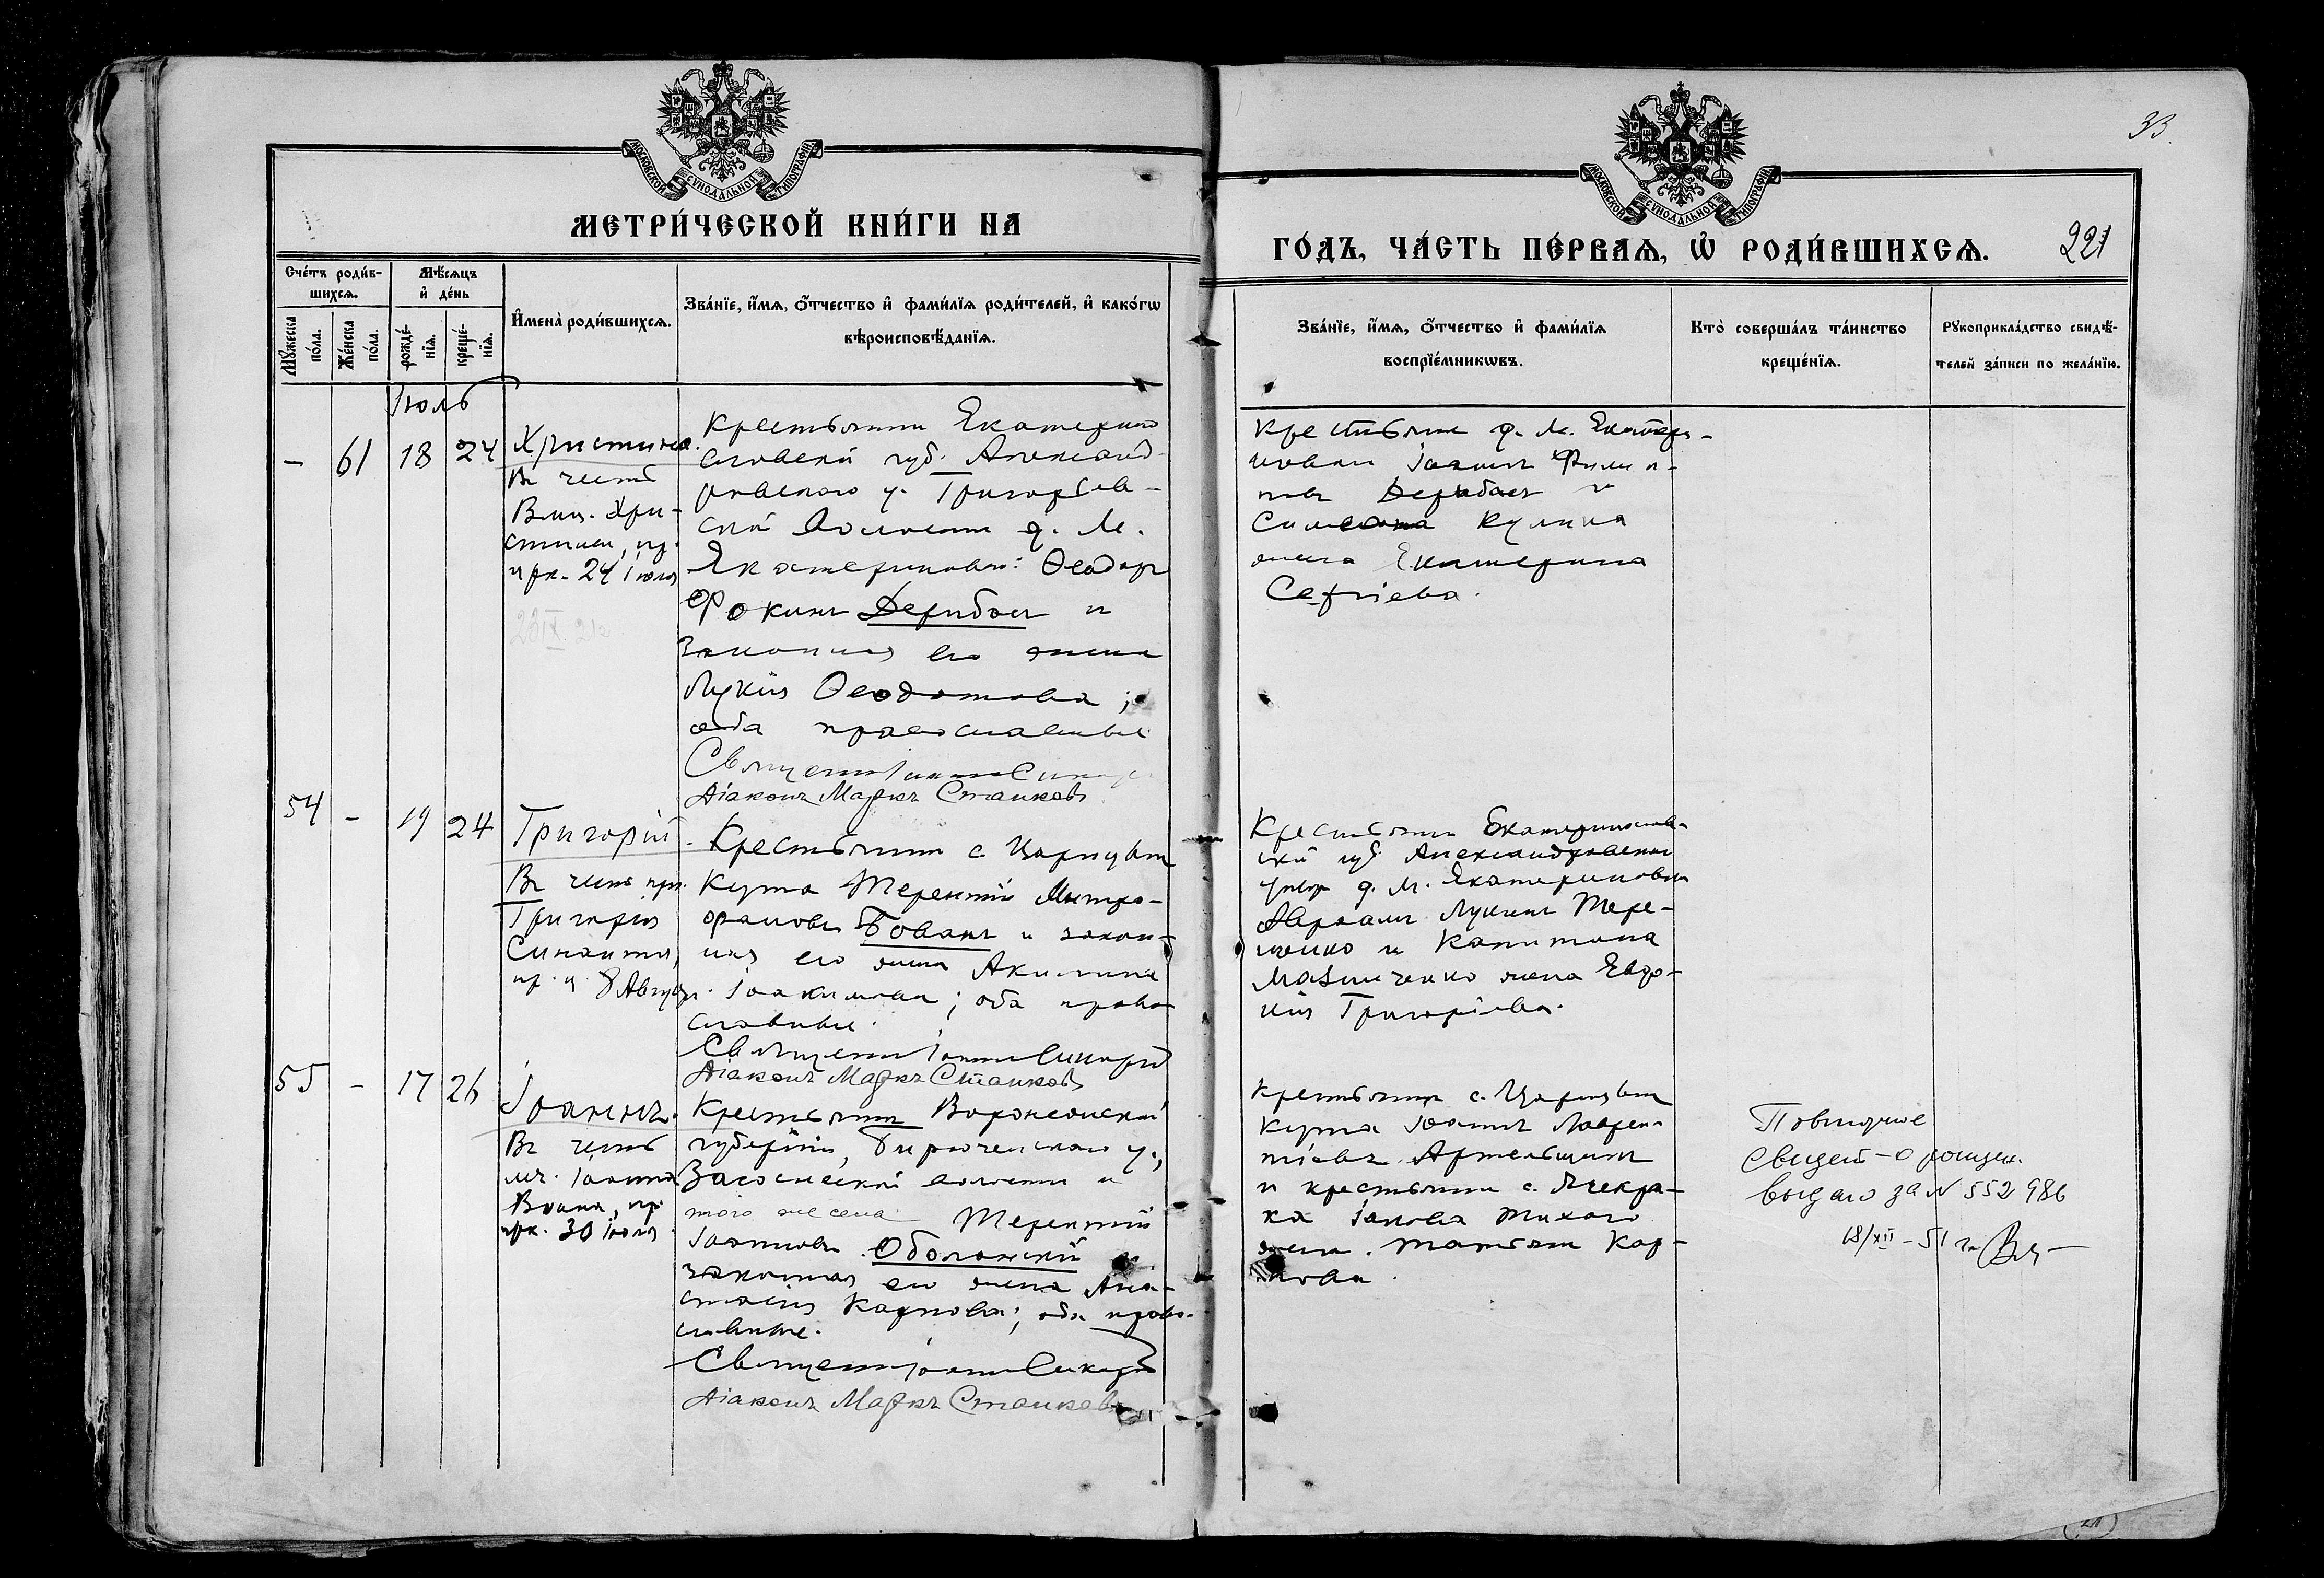 33
МОСКОВСКОЙ СУНОДАЛЬНОЙ ТИПОГРАФІИ
МОСКОВСКОЙ СУНОДАЛЬНОЙ ТИПОГРАФІИ
МЕТРИ́ЧЕСКОЙ КНИ́ГИ НА
ГО́ДЪ, ЧА́СТЬ ПЕ́РВАѦ, Ѡ҆ РОДИ́ВШИХСѦ.
221
Сче́тъ роди́в-
шихсѧ.
Мꙋ́жеска по́ла.
Же́нска по́ла.
Мѣ́сѧцъ
и҆ де́нь
рожде́-нїѧ.
креще́-нїѧ.
И҆мена̀ роди́вшихсѧ.
Зва́нїе, и҆́мѧ, ѻ҆́тчество и҆ фами́лїѧ роди́телей, и҆ како́гѡ
вѣроисповѣ́данїѧ.
Зва́нїе, и҆́мѧ, ѻ҆́тчество и҆ фами́лїѧ
воспрїе́мникѡвъ.
Кто̀ соверша́лъ та́инство
креще́нїѧ.
Рꙋкоприкла́дство свидѣ́-
телей за́писи по жела́нїю.
Іюль
– 61 18 24
Христина.
Въ честь
Влмц. Хри-
стины, пр.
црк. 24 Іюля
Крестьянинъ Екатерино
славской губ. Александ-
ровскаго у. Григорьев-
ской волости д. М.
Екатериновки: Ѳеодоръ
Фокинъ Дерибасъ и
законная его жена
Лукія Ѳеодотова;
оба православные
Священ Іоаннъ
Діаконъ Марк Станковъ
Крестьяне д. М. Екатери-
новки Іоаннъ Филип-
повъ Дерибасъ и
Кулика
жена Екатерина
Сергіева.
54 – 19 24
Григорій.
Въ честь пр.
Григорія
Синаита,
пр. ц. 8 Август.
Крестьянинъ с. Царицынъ
Кута Терентій Митро-
фановъ Бованъ и закон-
ная его жена Акилина
Іоакимова; оба право
славные.
Священ Іоаннъ
Діаконъ Марк Станковъ
Крестьяне Екатеринослав-
ской губ. Александровскаго
уезда д. М. Екатериновки
Авраамъ Лукинъ Тере-
щенко и Капитона
Мазниченко жена Евдо-
кія Григоріева.
55 – 17 26
Іоаннъ.
Въ честь
мч. Іоанна
Воина, пр
црк. 30 Іюля.
Крестьянинъ Воронежской
губерніи, Бирюченскаго у.,
Засосенской волости и
того же села Терентій
Іоанновъ Оболонскій и
законная его жена Ана-
стасія Карпова; оба право-
славные.
Священ Іоаннъ
Діаконъ Марк Станковъ
Крестьяне с. Царицынъ
Кута Іоаннъ Лаврен-
тіевъ Артельщикъ
и крестьянин с.
Іакова Тихаго
жена. Татьяна Кар-
пова.
Повторное
Свидет-о рожден.
выдано за N 552986
18/XII – 51 г.